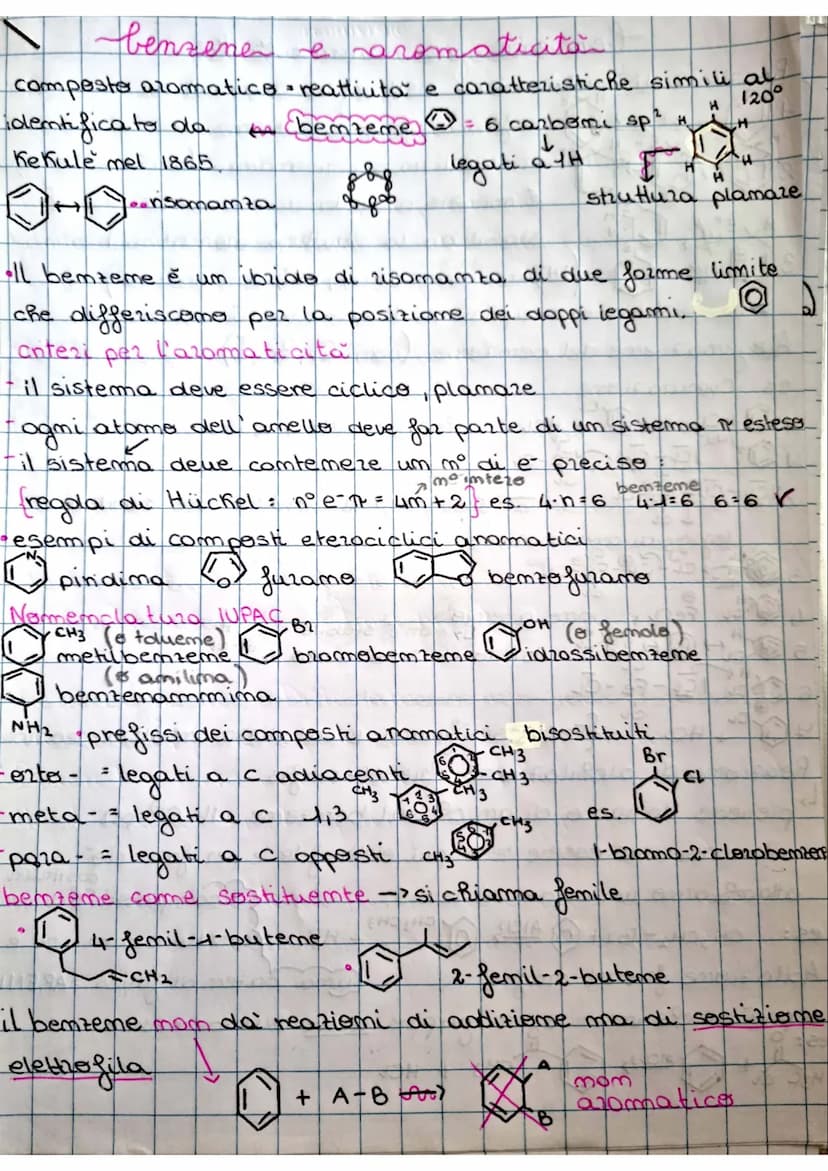 benzene e aromaticità
composto aromatico = reattività e caratteristiche simili al
identificato da benzene = 6 carboni sp² 120°
Kekulè nel 1865. legati a 1H
risonanza struttura planare
H H H H H H
•Il benzene è un ibrido di risonanza di due forme limite
che differiscono per la posizione dei doppi legami.
criteri per l'aromaticità
- il sistema deve essere ciclico, planare
- ogni atomo dell'anello deve far parte di un sistema π esteso
- il sistema deve contenere un n° di e⁻ preciso :
n° intero benzene
{regola di Hückel = n° e⁻π = 4n + 2} es. 4·n=6 4·1=6 6=6 ✓
•esempi di composti eterociclici aromatici
N piridina O furano O benzofurano
Nomenclatura IUPAC
CH3 (o toluene) Br OH (o fenolo)
metilbenzene bromobenzene idrossibenzene
(o anilina)
benzenammina
NH2 •prefissi dei composti aromatici bisostituiti
- orto- = legati a C adiacenti CH3 CH3 Br Cl
- meta- = legati a C 1,3 CH3 CH3 es.
- para- = legati a C opposti CH3 CH3 1-bromo-2-clorobenzen
benzene come sostituente -> si chiama fenile
• 4-fenil-1-butene
=CH2 • 2-fenil-2-butene
il benzene non dà reazioni di addizione ma di sostizione
elettrofila
+ A-B A B non
aromatico